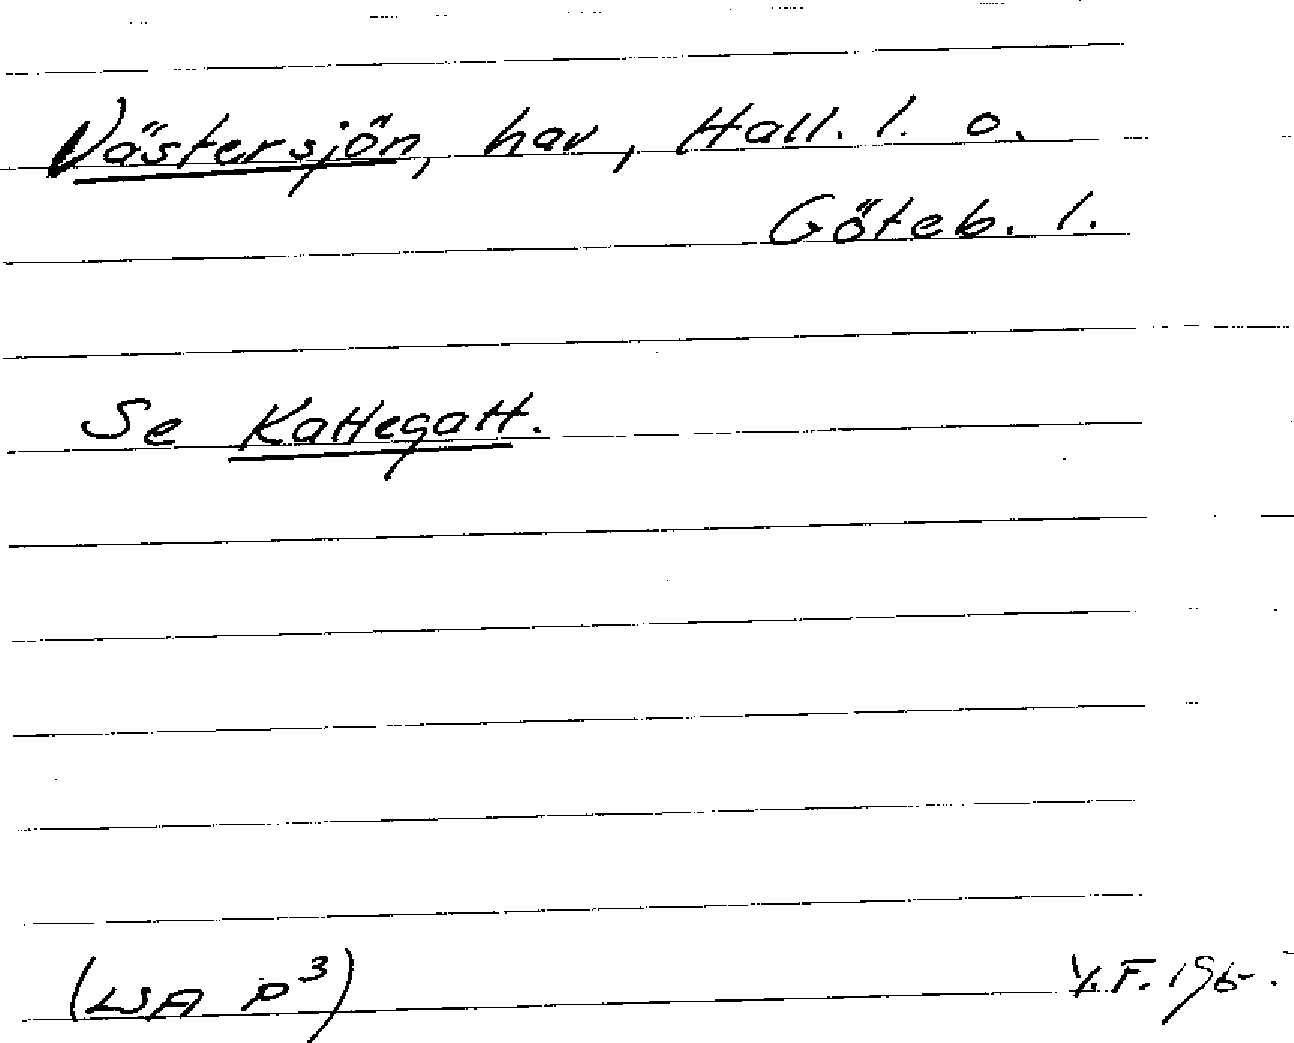 Västersjön, hav, Hall. l. o.
Göteb. l.
Se Kattegatt.
(LSA P³)